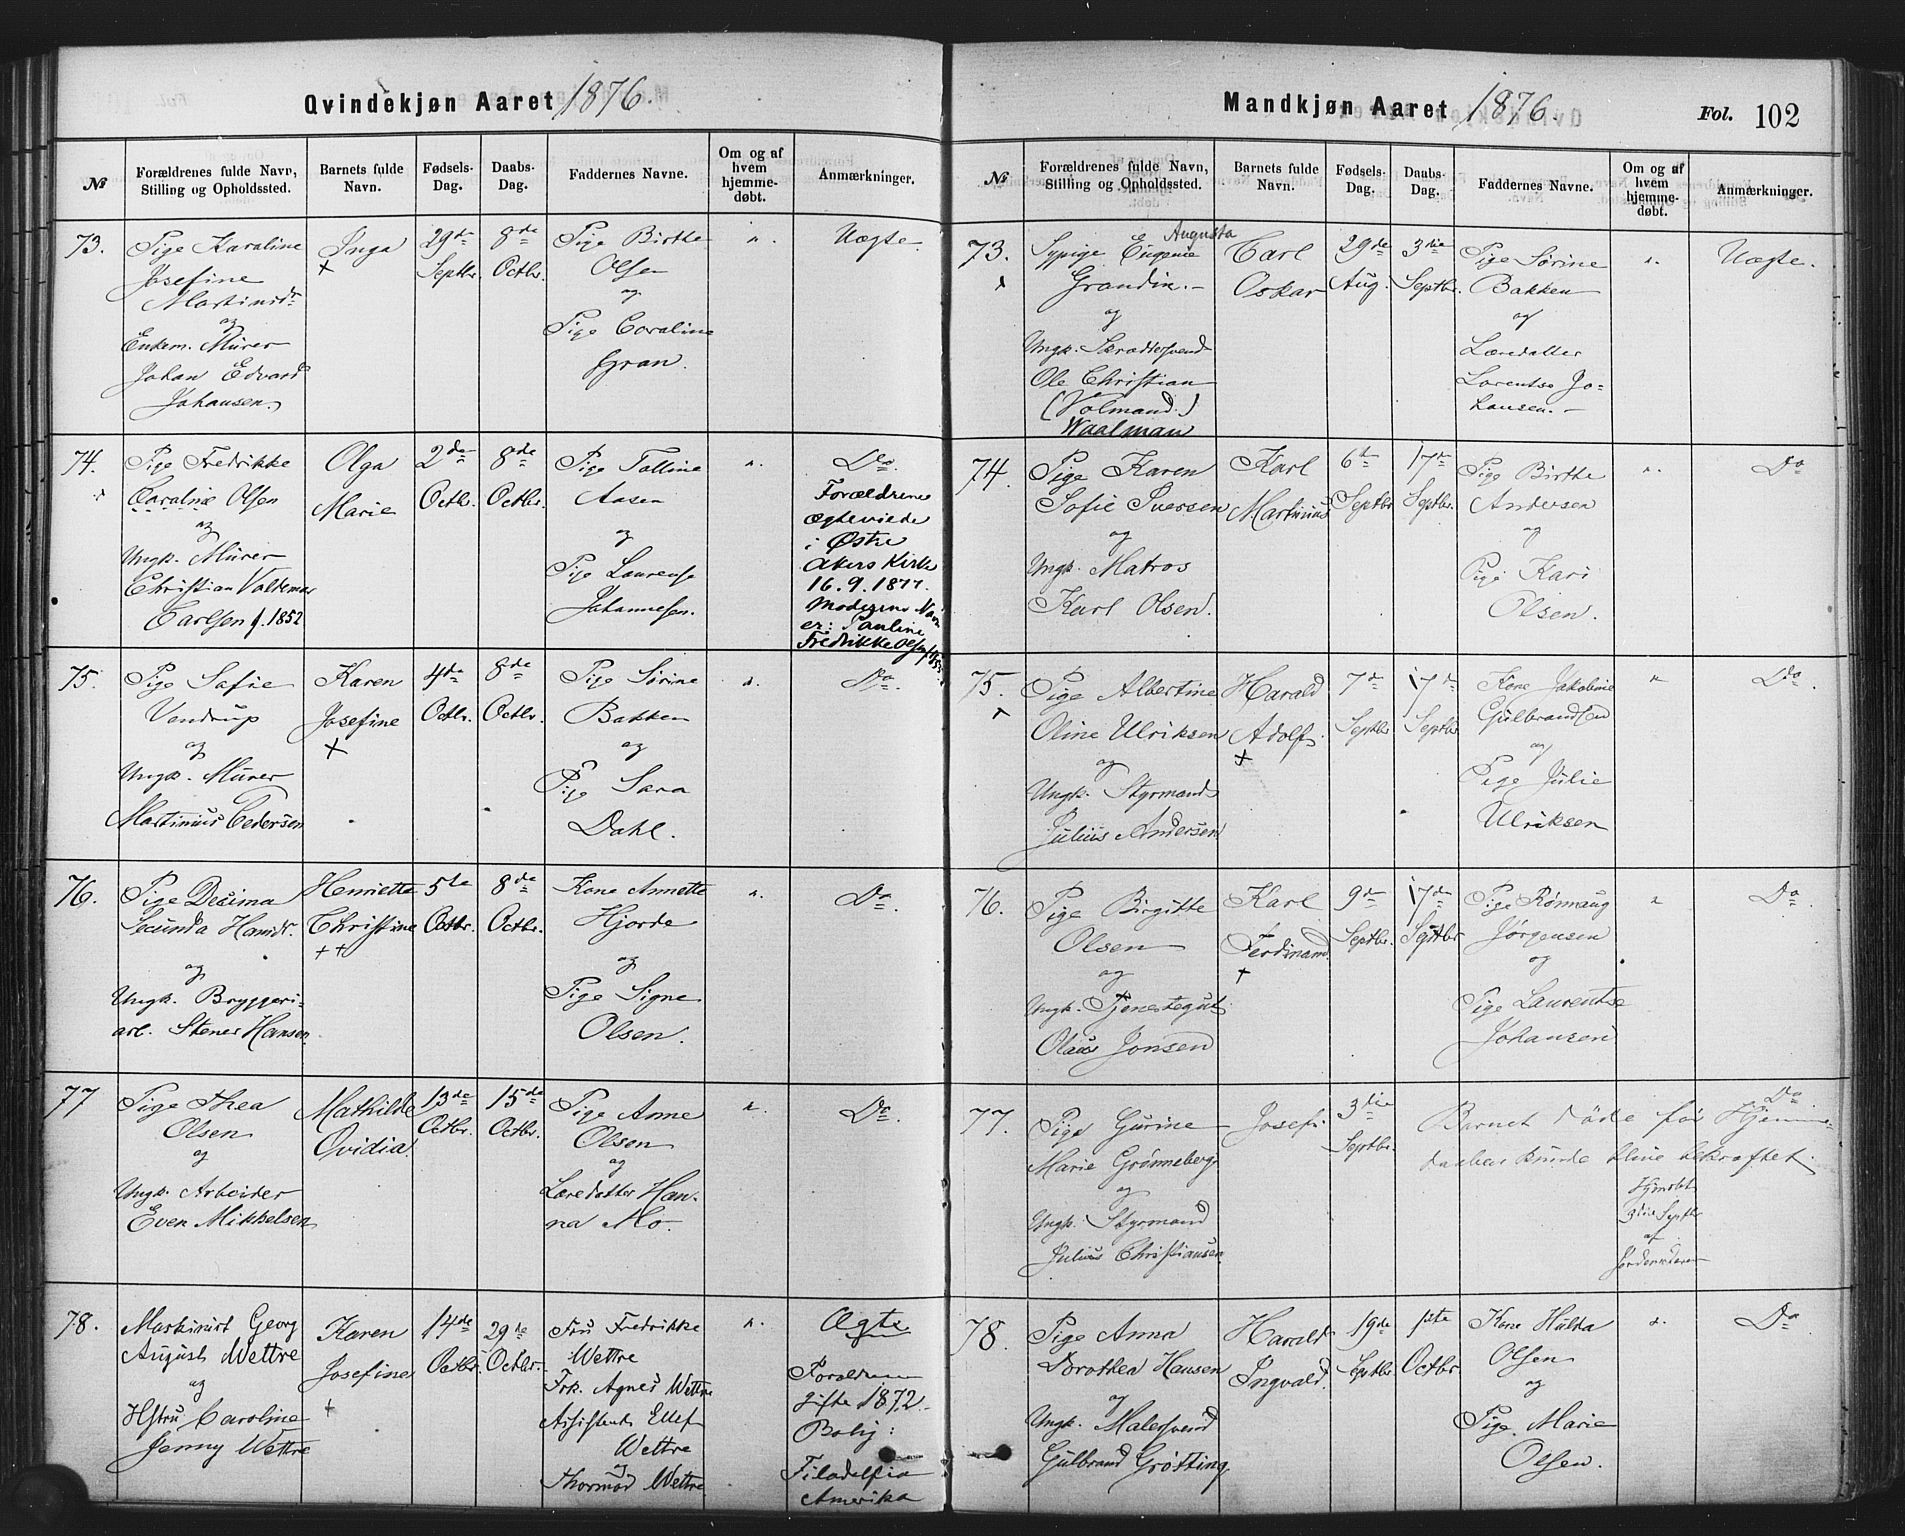 Qvindekjøn Aaret 1876.
№
Forældrenes fulde Navn,
Stilling og Opholdssted.
Barnets fulde
Navn.
Fødsels-
Dag.
Daabs-
Dag.
Faddernes Navne.
Om og af
hvem
hjemme-
døbt.
Anmærkninger.
73.
Pige Karaline
Josefine
Martinsdr
og
Enkem. Murer
Johan Edvard
Johansen.
Inga
29de
Septbr.
8de
Octbr.
Pige Birthe
Olsen
og
Pige Coraline
Gran.
Uægte.
74.
Pige Fredrikke
Caroline Olsen
og
Ungk. Murer
Christian Valdemar
Carlsen f. 1852
Olga
Marie
2den
Octbr.
8de
Octbr.
Pige Talline
Aasen
og
Pige Laurense
Johannesen.
Do.
Forældrene
ægteviede
i Østre
Akers Kirke
16.9.1877.
Moderens Navn
er: Pauline
Fredrikke Olsen
75.
Pige Safie
Vendrup
og
Ungk. Murer
Martinius Pedersen
Karen
Josefine
4de
Octbr.
8de
Octbr.
Pige Sørine
Bakken
og
Pige Sara
Dahl.
Do.
76.
Pige Decima
Secunda Hansdr.
og
Ungk. Bryggeri-
arb. Stener Hansen
Henriette
Christine
5te
Octbr.
8de
Octbr.
Kone Annette
Hjorde
og
Pige Signe
Olsen.
Do.
77
Pige Thea
Olsen
og
Ungk. Arbeider
Even Mikkelsen
Mathilde
Ovidia.
13de
Octbr.
15de
Octbr.
Pige Anne
Olsen
og
Læredatter Han-
na Mo.
Do.
78.
Maskinist Georg
August Wettre
og
Hstru Caroline
Jenny Wettre
Karen
Josefine
14de
Octbr.
29de
Octbr.
Fru Fredrikke
Wettre
Frk. Agnes Wettre
Assistent Ellef
Wettre
og
Thormod Wettre.
Ægte
Forældrene
gifte 1872.
Bolig:
Filadelfia
Amerika
Mandkjøn Aaret 1876.
Fol. 102
№
Forældrenes fulde Navn,
Stilling og Opholdssted.
Barnets fulde
Navn.
Fødsels-
Dag.
Daabs-
Dag.
Faddernes Navne.
Om og af
hvem
hjemme-
døbt.
Anmærkninger.
73.
Augusta
Sypige Eugenie
Grandin.
og
Ungk. Skrædersvend
Ole Christian
(Volmand.)
Waalman
Carl
Oskar
29de
Aug.
3die
Septbr.
Pige Sørine
Bakken
og
Læredatter
Lorentse Jo-
hansen.
Uægte.
74.
Pige Karen
Sofie Iversen
og
Ungk. Matros
Karl Olsen.
Karl
Martinius
6te
Septbr
17de
Septbr.
Pige Birthe
Andersen
og
Pige Kari
Olsen.
Do
75.
Pige Albertine
Oline Ulriksen
og
Ungk. Styrmand
Julius Andersen
Harald
Adolf.
7de
Septbr
17de
Septbr
Kone Jakobine
Gulbrandsen
og
Pige Julie
Ulriksen
Do.
76.
Pige Birgitte
Olsen
og
Ungk. Tjenestegut
Olaus Jonsen
Karl
Ferdinand
9de
Septbr.
17de
Septbr
Pige Rønnaug
Jørgensen
og
Pige Laurentse
Johansen
Do.
77.
Pige Gurine
Marie Grønneberg
og
Ungk. Styrmand
Julius Christiansen
Josef.
3die
Septbr.
Barnet døde før Hjemme-
daaben kunde blive bekræftet.
Hjmdøbt
3die Septbr
af
Jordemoderen
Do
78.
Pige Anna
Dorothea Hansen
og
Ungk. Malersvend
Gulbrand Grøtting
Harald
Ingvald.
19de
Septbr
1ste
Octbr
Kone Hulda
Olsen
og
Pige Marie
Olsen.
Do